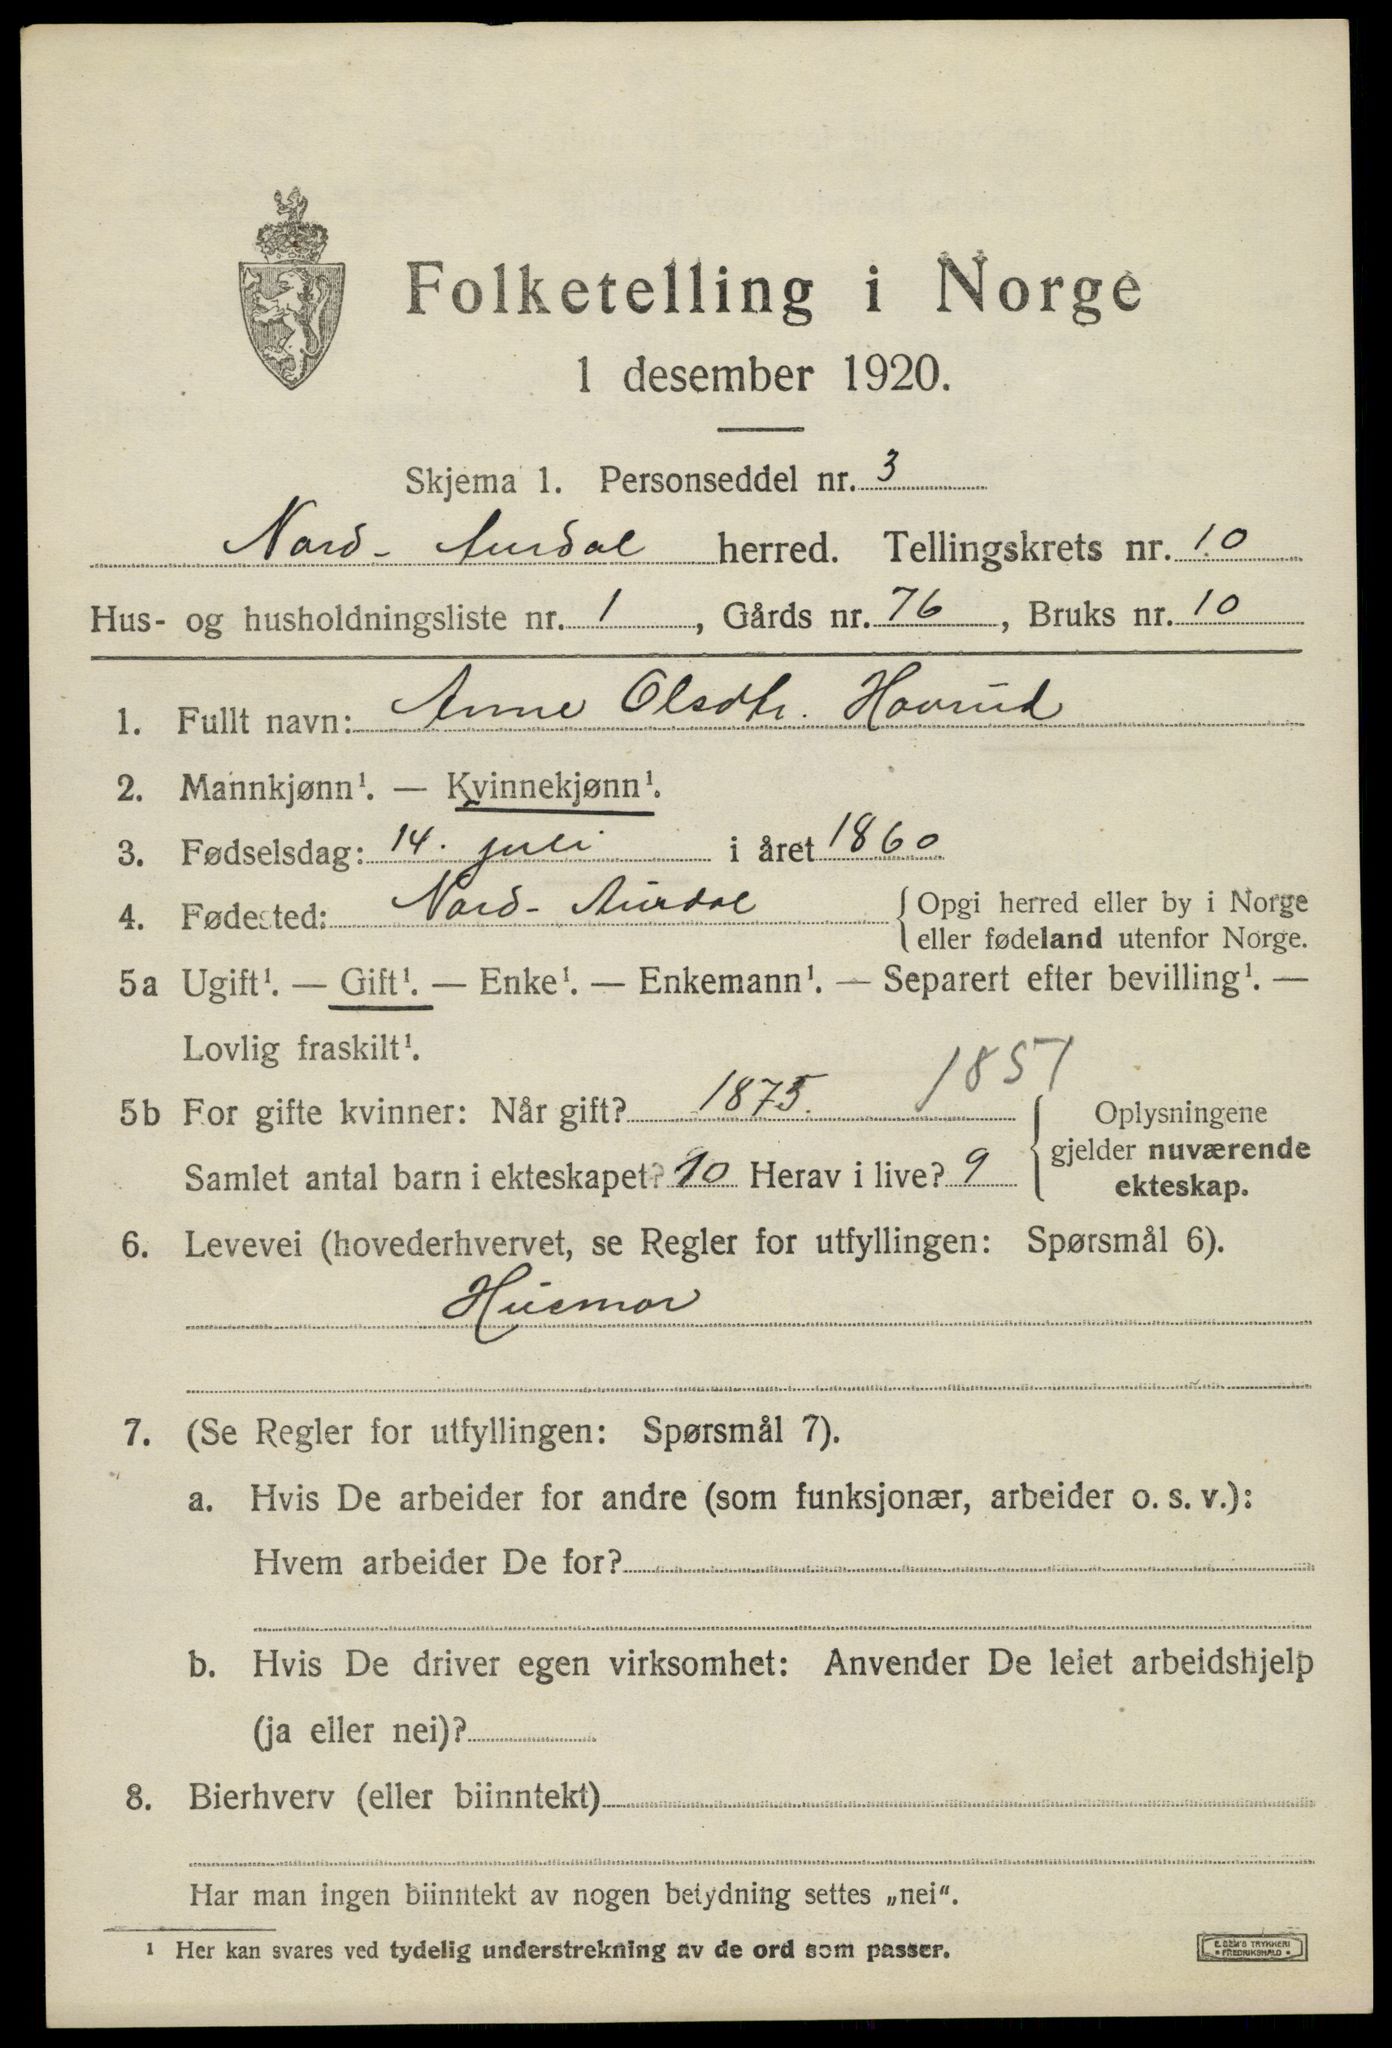 Folketelling i Norge
1 desember 1920.
Skjema 1. Personseddel nr. 3
Nord-Aurdal herred. Tellingskrets nr. 10
Hus- og husholdningsliste nr. 1, Gårds nr. 76, Bruks nr. 10
1. Fullt navn: Anne Olsdtr. Hovrud
2. Mannkjønn¹. — Kvinnekjønn¹.
3. Fødselsdag: 14. juli i året 1860
4. Fødested: Nord-Aurdal { Opgi herred eller by i Norge
eller fødeland utenfor Norge.
5a Ugift¹. — Gift¹. — Enke¹. — Enkemann¹. — Separert efter bevilling¹. —
Lovlig fraskilt¹.
1857
5b For gifte kvinner: Når gift? 1875. { Oplysningene
gjelder nuværende
ekteskap.
Samlet antal barn i ekteskapet? 10 Herav i live? 9
6. Levevei (hovederhvervet, se Regler for utfyllingen: Spørsmål 6).
Husmor
7. (Se Regler for utfyllingen: Spørsmål 7).
a. Hvis De arbeider for andre (som funksjonær, arbeider o. s. v.):
Hvem arbeider De for?
b. Hvis De driver egen virksomhet: Anvender De leiet arbeidshjelp
(ja eller nei)?
8. Bierhverv (eller biinntekt)
Har man ingen biinntekt av nogen betydning settes „nei“.
¹ Her kan svares ved tydelig understrekning av de ord som passer.
E. SEM'S TRYKKERI
• FREDRIKSHALD •